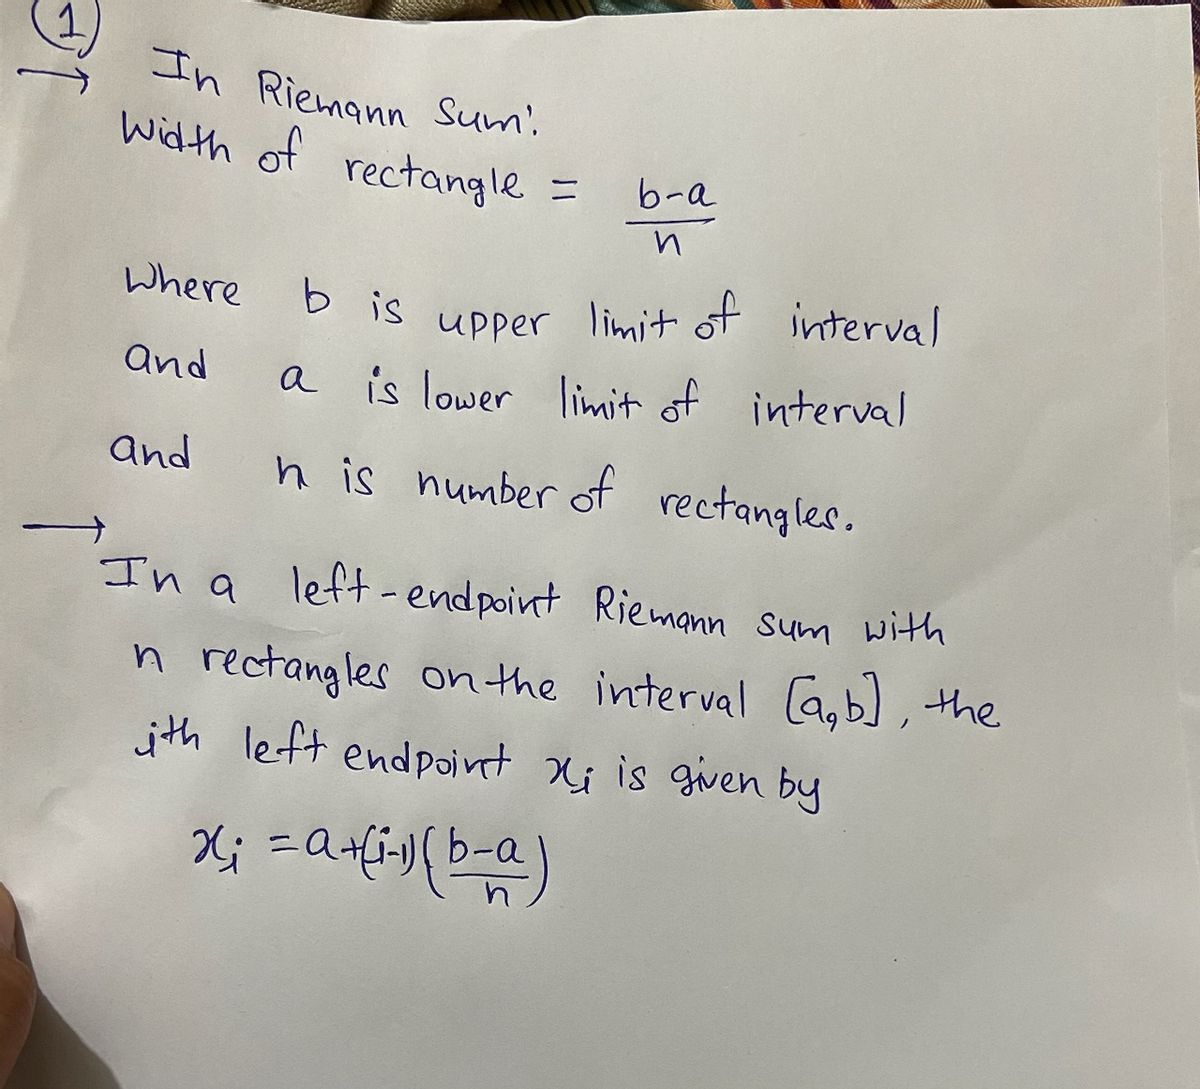 1)
→ In Riemann Sum:
Width of rectangle = b-a
n
Where b is upper limit of interval
and a is lower limit of interval
and n is number of rectangles.
→
In a left-endpoint Riemann sum with
n rectangles on the interval [a,b], the
ith left endpoint xi is given by
xi = a+(i-1)(b-a
n)